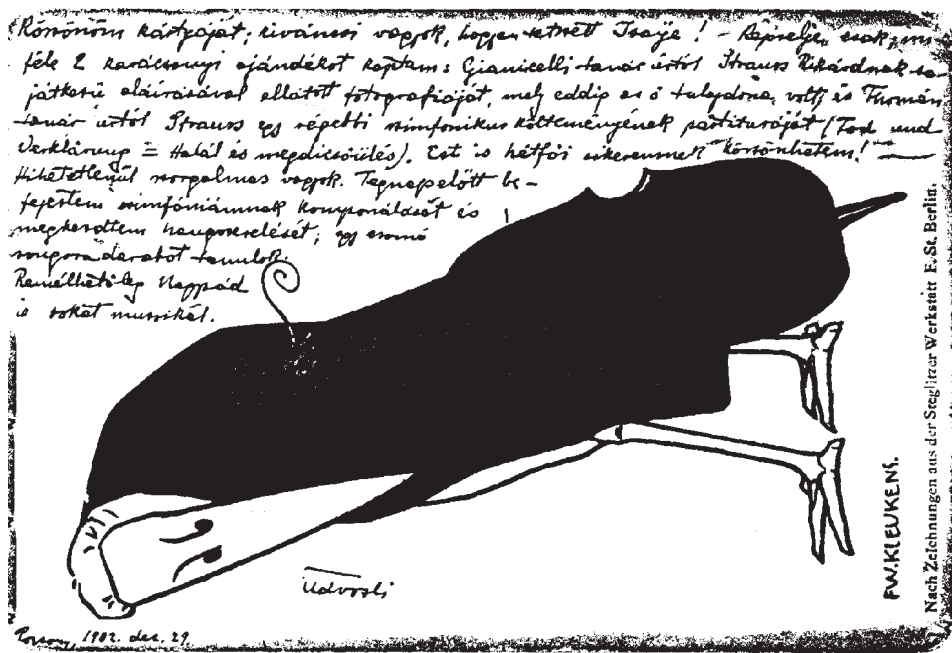 Köszönöm kártyáját; kiváncsi vagyok, hogyan tetszett Isaÿe! – Képzelje, csak,
féle 2 karácsonyi ajándékot kaptam: Gianicelli tanár úrtól Strauss Rikárdnak sa-
játkezü aláirásával ellátott fotografiáját, mely eddig az ő tulajdona volt, és Thomán
tanár úrtól Strauss egy régebbi szimfonikus költeményének partituráját (Tod und
Verklärung = Halál és megdicsöülés). Ezt is hétfői sikeremnek köszönhetem! —
Hihetetlenül szorgalmas vagyok. Tegnapelőtt be-
fejeztem szimfóniámnak komponálását és
megkezdtem hangszerelését; egy csomó
zongora darabot tanulok.
Remélhetőleg Nagysád
is sokat muzsikál.
Üdvözli
Pozsony, 1902. dec. 29.
FW.KLEUKENS.
Nach Zeichnungen aus der Steglitzer Werkstatt E. St. Berlin.